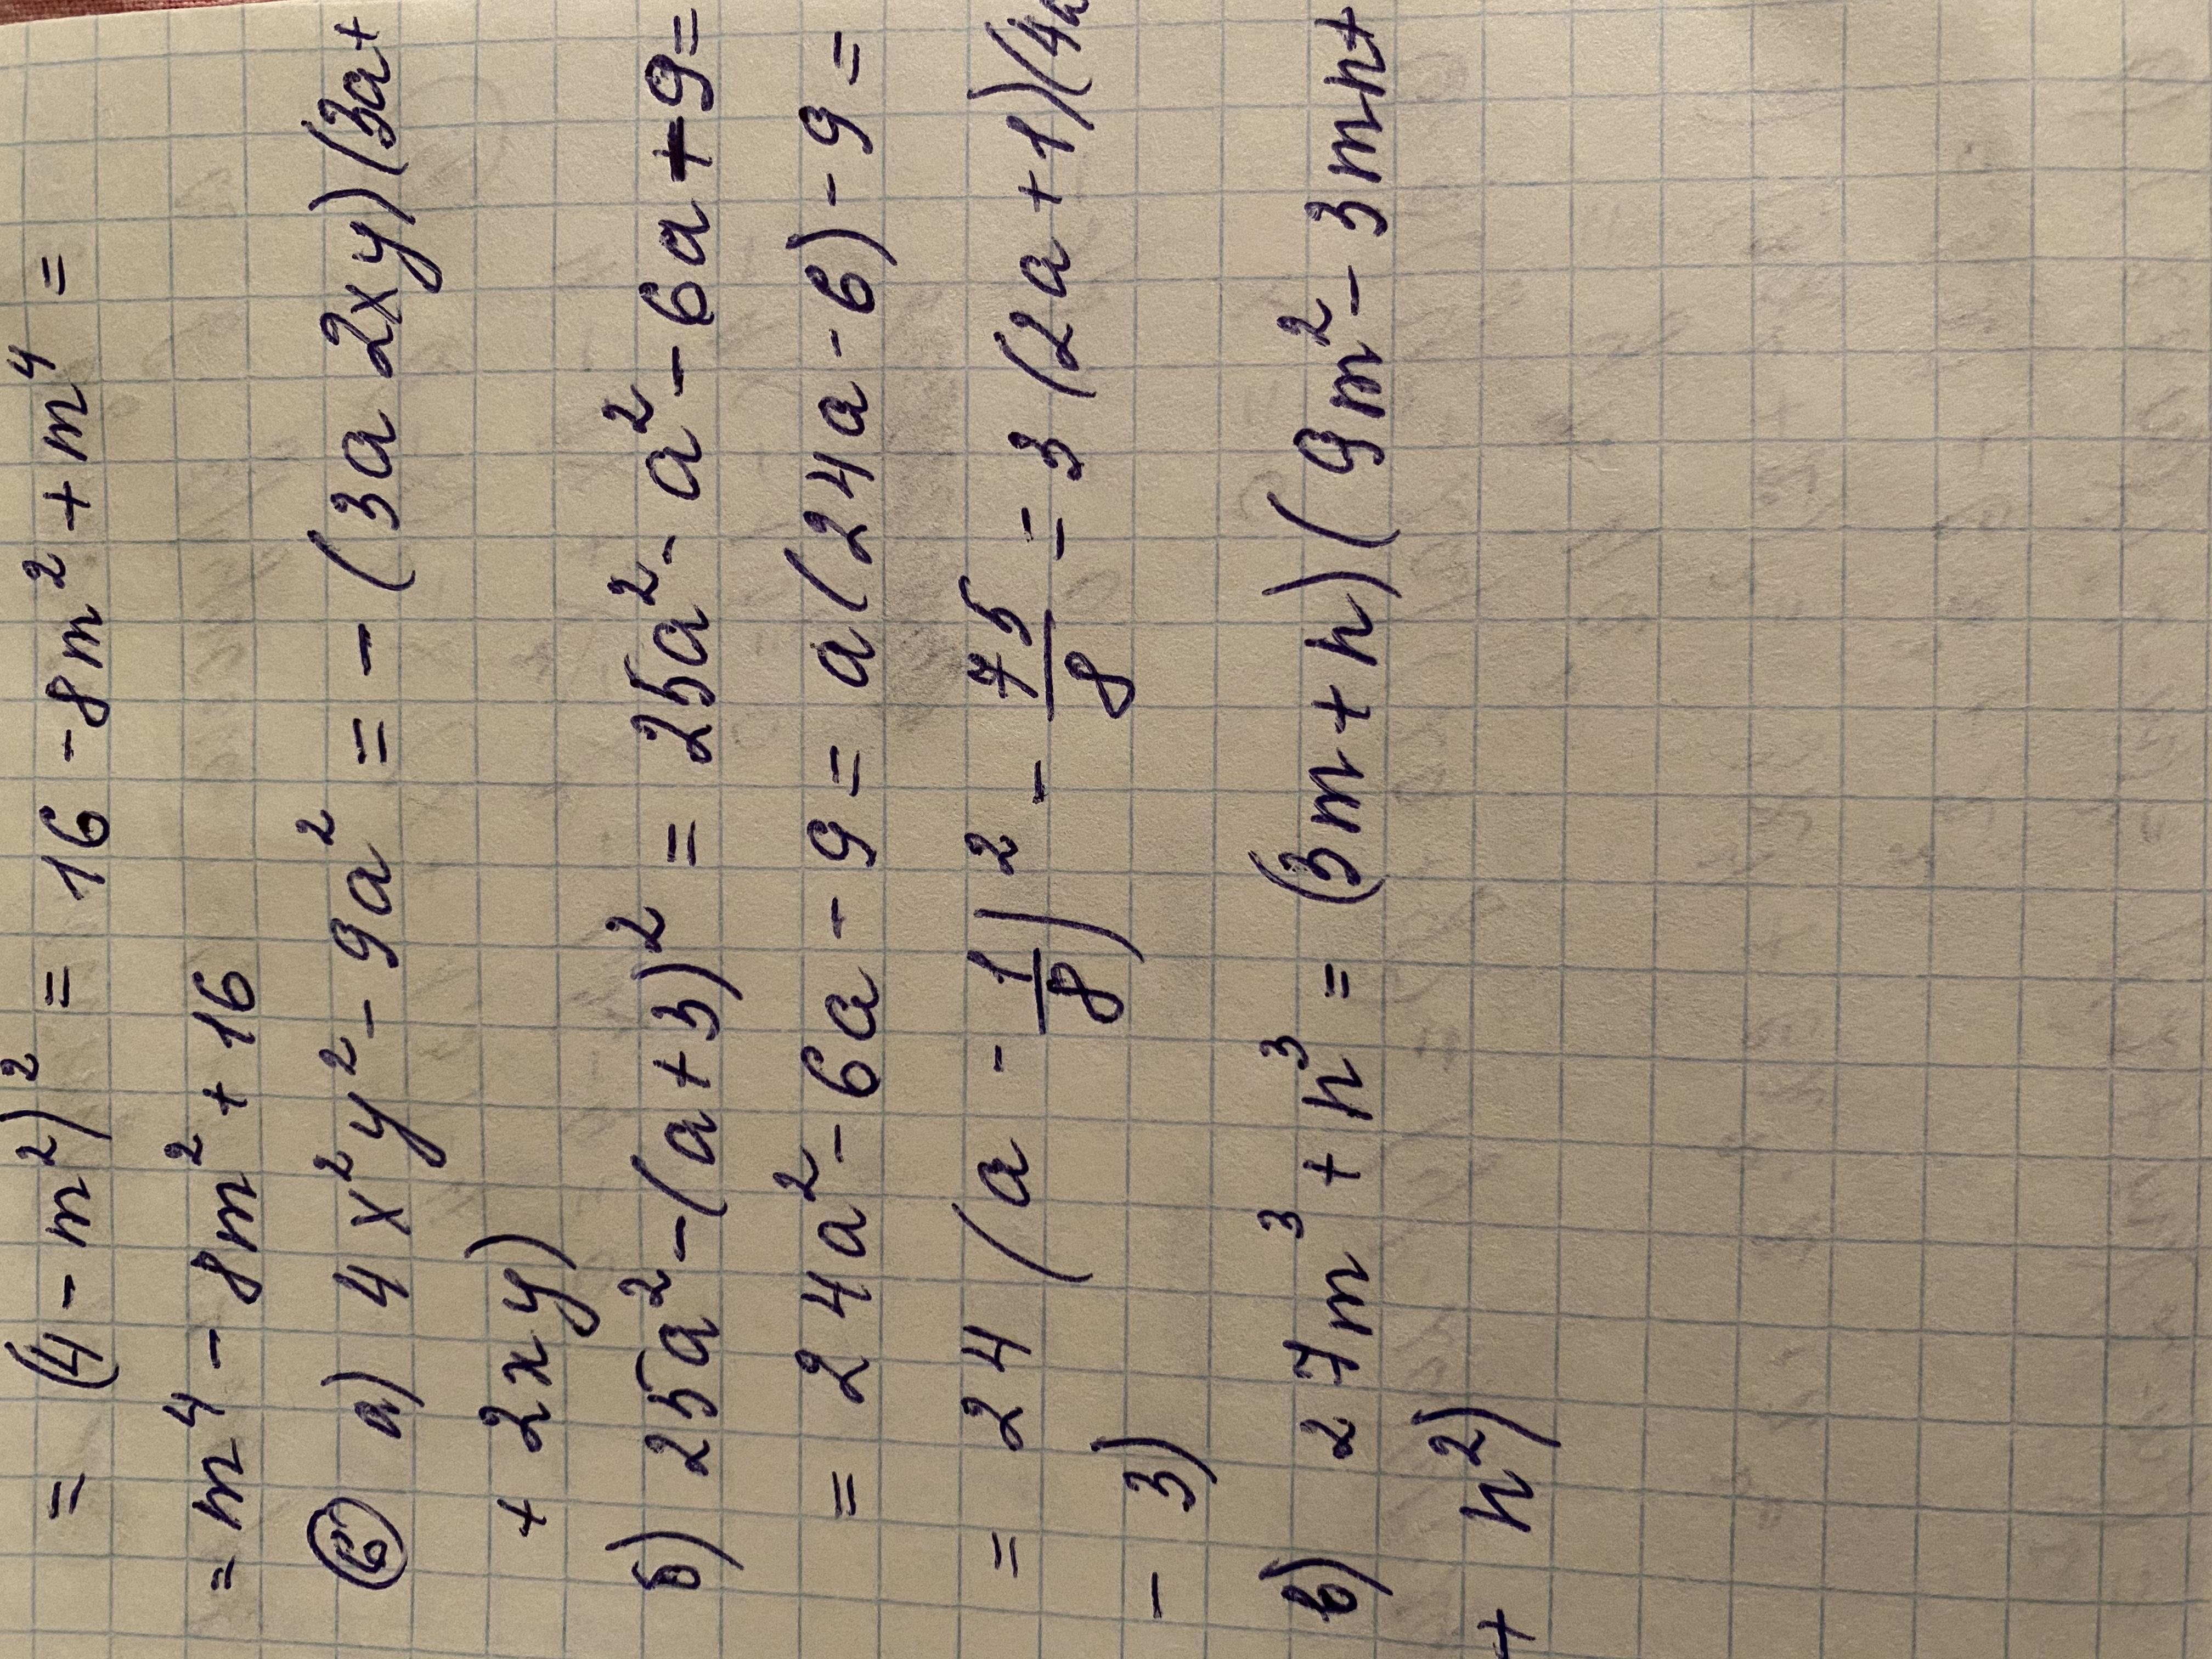 = (4 - m²)² = 16 - 8m² + m⁴ =
= m⁴ - 8m² + 16
⑥ а) 4x²y² - 9a² = - (3a 2xy)(3a +
+ 2xy)
б) 25a² - (a + 3)² = 25a² - a² - 6a + 9 =
= 24a² - 6a - 9 = a(24a - 6) - 9 =
= 24 (a - 1/8)² - 75/8 = 3 (2a + 1)(4a
- 3)
в) 27m³ + n³ = (3m + n)(9m² - 3mn +
+ n²)